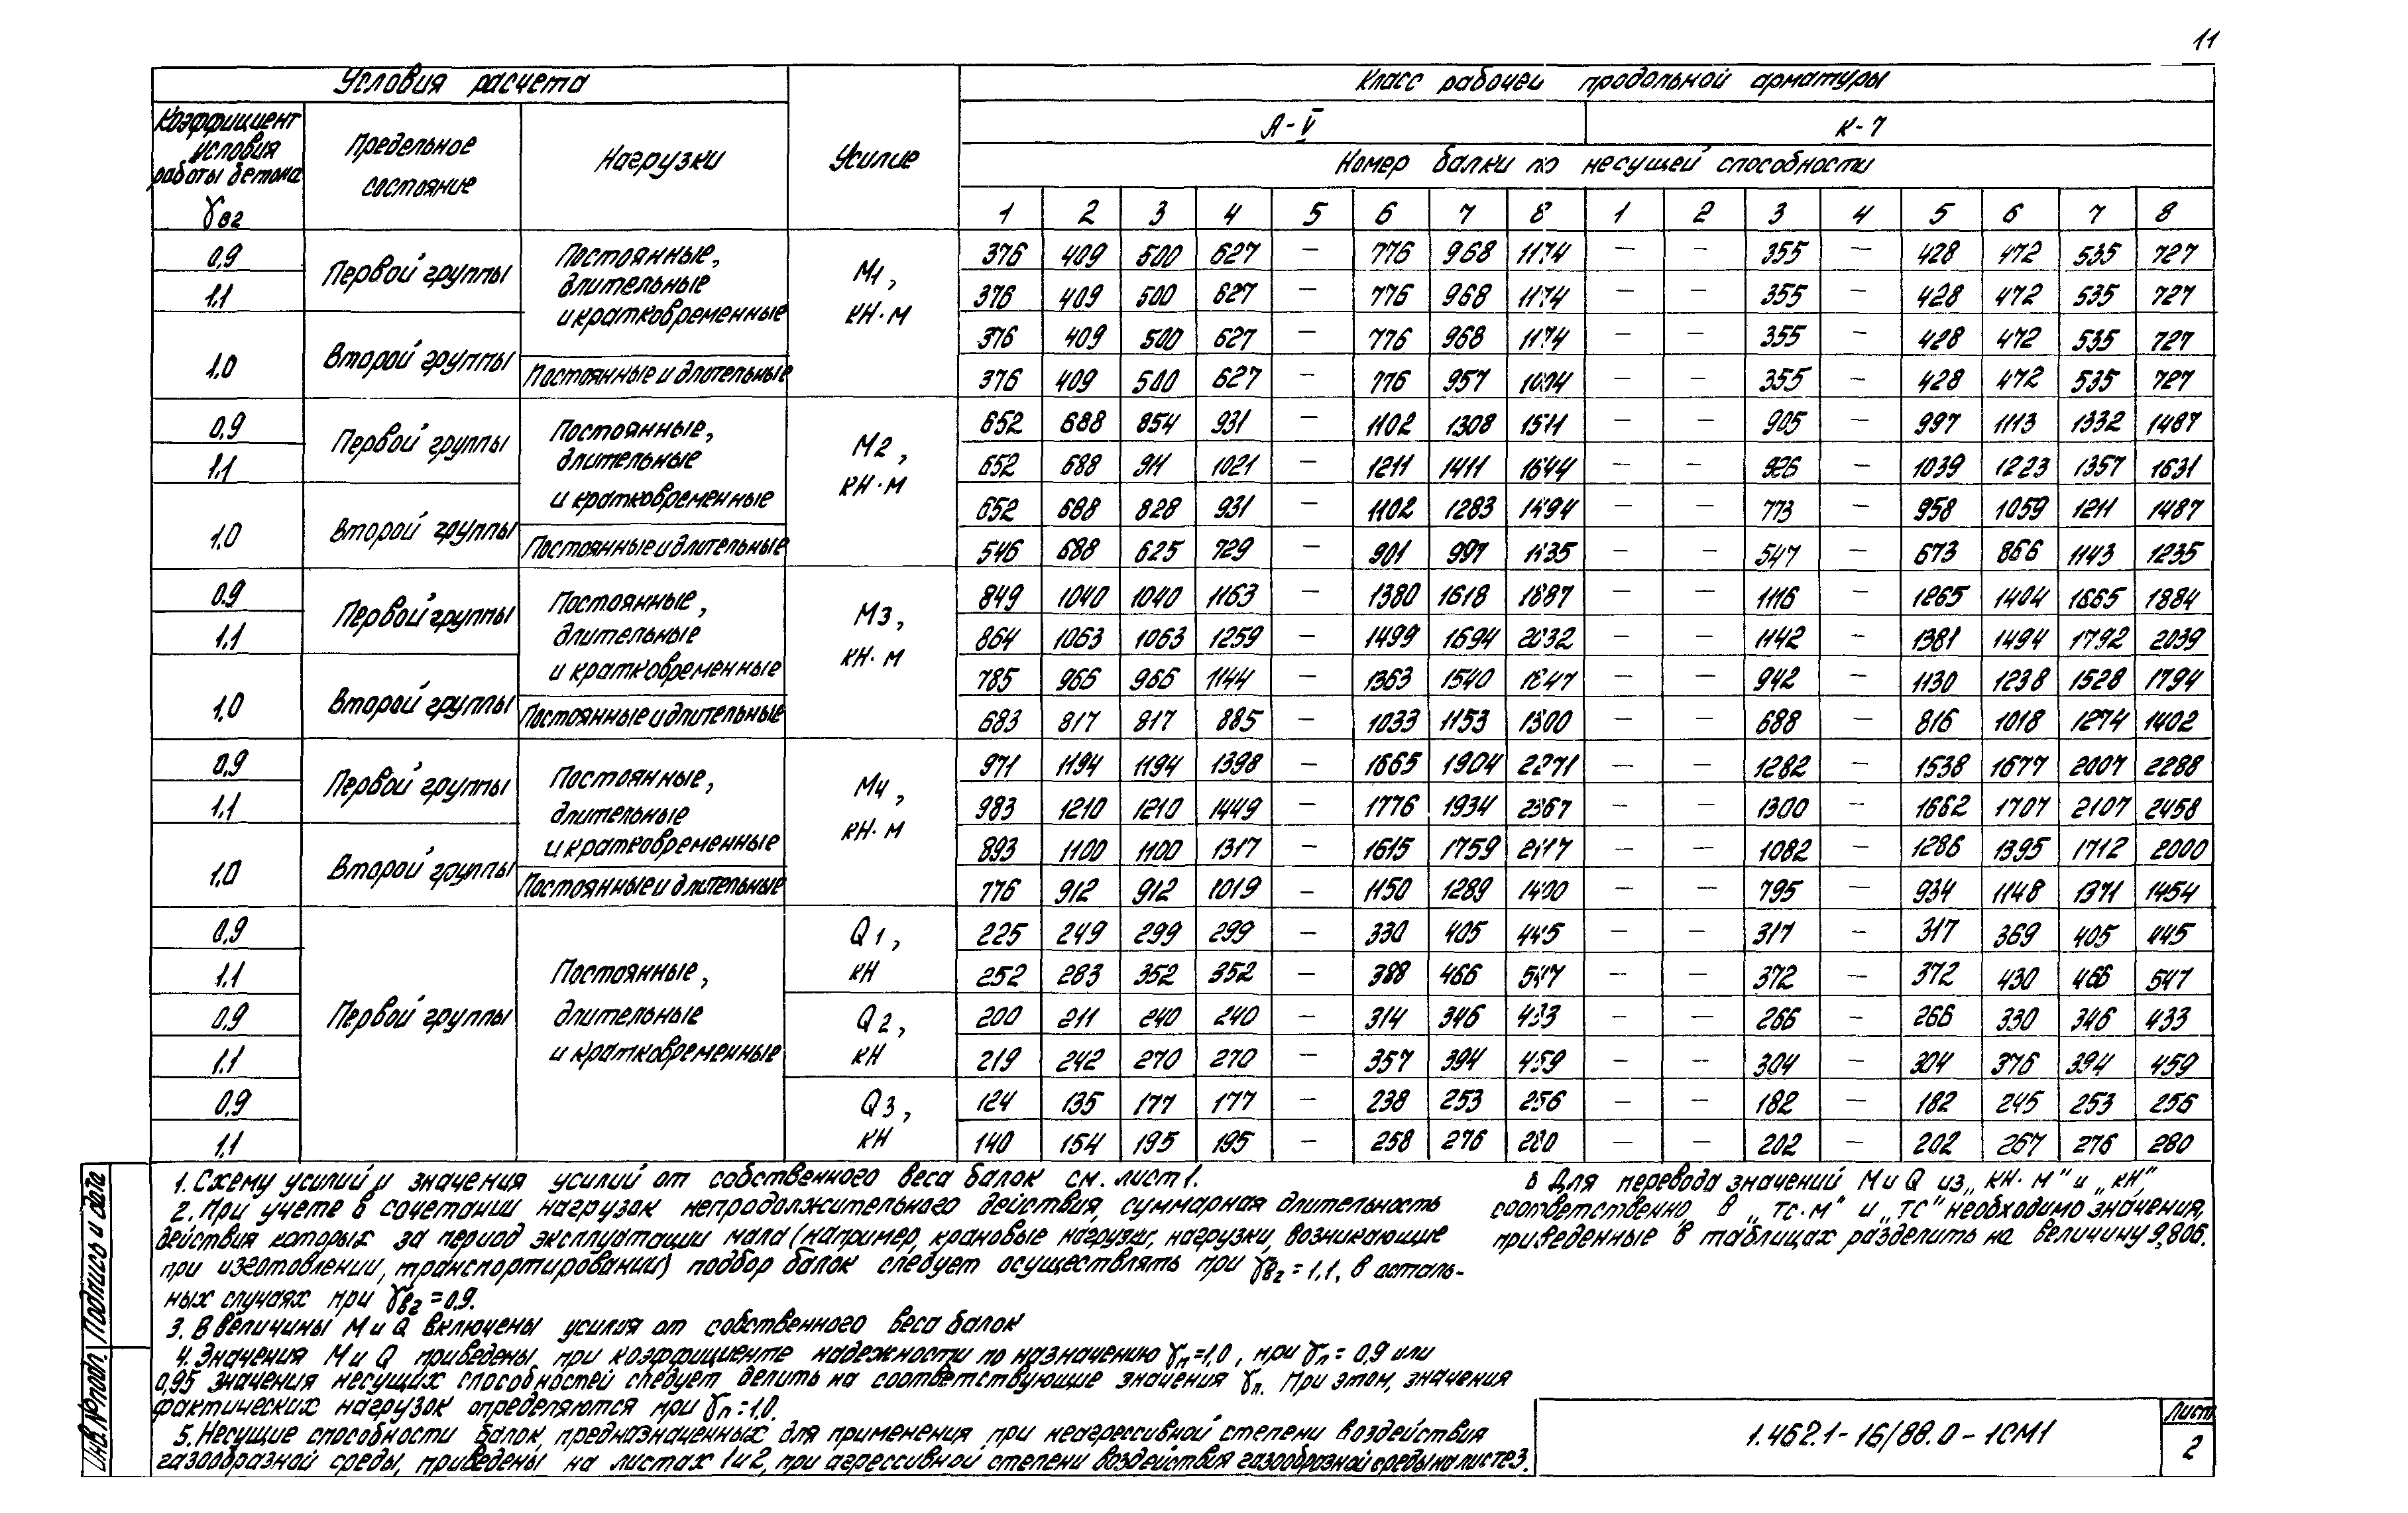 11
Условия расчета
Класс рабочей продольной арматуры
Коэффициент условия работы бетона γв2
Предельное состояние
Нагрузки
Усилие
А-V К-7
Номер балки по несущей способности
1 2 3 4 5 6 7 8 1 2 3 4 5 6 7 8
0,9 Первой группы Постоянные, длительные и кратковременные М1, кН·м 376 409 500 627 — 776 968 1174 — — 355 — 428 472 535 727
1.1 376 409 500 627 — 776 968 1174 — — 355 — 428 472 535 727
1.0 Второй группы 376 409 500 627 — 776 968 1174 — — 355 — 428 472 535 727
Постоянные и длительные 376 409 500 627 — 776 957 — — 355 — 428 472 535 727
0,9 Первой группы Постоянные, длительные и кратковременные М2, кН·м 652 688 854 931 — 1102 1308 1511 — — 905 — 997 1113 1332 1487
1.1 652 688 911 1021 — 1211 1411 1644 — — 926 — 1039 1223 1357 1631
1.0 Второй группы 652 688 828 931 — 1102 1283 1494 — — 773 — 958 1059 1211 1487
Постоянные и длительные 546 688 625 729 — 901 997 — — 547 — 673 866 1143 1235
0.9 Первой группы Постоянные, длительные и кратковременные М3, кН·м 849 1040 1040 1163 — 1380 1618 1887 — — 1116 — 1265 1404 1665 1884
1.1 864 1063 1063 1259 — 1499 1694 2032 — — 1142 — 1381 1494 1792 2039
1.0 Второй группы 785 966 966 1144 — 1363 1540 1847 — — 942 — 1130 1238 1528 1794
Постоянные и длительные 683 817 817 885 — 1033 1153 1300 — — 688 — 816 1018 1274 1402
0,9 Первой группы Постоянные, длительные и кратковременные М4, кН·м 971 1194 1194 1398 — 1665 1904 2271 — — 1282 — 1538 1677 2007 2288
1.1 983 1210 1210 1449 — 1776 1934 2367 — — 1300 — 1662 1707 2107 2458
1.0 Второй группы 893 1100 1100 1317 — 1615 1759 — — 1082 — 1286 1395 1712 2000
Постоянные и длительные 776 912 912 1019 — 1150 1289 — — 795 — 934 1148 1371 1454
0,9 Первой группы Постоянные, длительные и кратковременные Q1, кН 225 249 299 299 — 330 405 445 — — 317 — 317 369 405 445
1.1 252 283 352 352 — 388 466 547 — — 372 — 372 430 466 547
0,9 Q2, кН 200 211 240 240 — 314 346 433 — — 266 — 266 330 346 433
1.1 219 242 270 270 — 357 394 459 — — 304 — 304 376 394 459
0,9 Q3, кН 124 135 177 177 — 238 253 256 — — 182 — 182 245 253 256
1.1 140 154 195 195 — 258 276 280 — — 202 — 202 267 276 280
1. Схему усилий и значения усилий от собственного веса балок см. лист 1.
2. При учете в сочетании нагрузок непродолжительного действия, суммарная длительность
действия которых за период эксплуатации мала (например, крановые нагрузки, нагрузки, возникающие
при изготовлении, транспортировании) подбор балок следует осуществлять при γв2 = 1.1, в осталь-
ных случаях при γв2 = 0.9.
3. В величины М и Q включены усилия от собственного веса балок
4. Значения М и Q приведены при коэффициенте надежности по назначению γп=1,0, при γп = 0,9 или
0,95 значения несущих способностей следует делить на соответствующие значения γп. При этом, значения
фактических нагрузок определяются при γп = 1,0.
5. Несущие способности балок, предназначенных для применения при неагрессивной степени воздействия
газообразной среды, приведены на листах 1 и 2, при агрессивной степени воздействия газообразной среды на листе 3.
6 Для перевода значений М и Q из „кН·м" и „кН",
соответственно, в „тс·м" и „тс" необходимо значения,
приведенные в таблицах разделить на величину 9,806.
Инв.№ подл. Подпись и дата
1.462.1-16/88.0-1СМ1
Лист
2